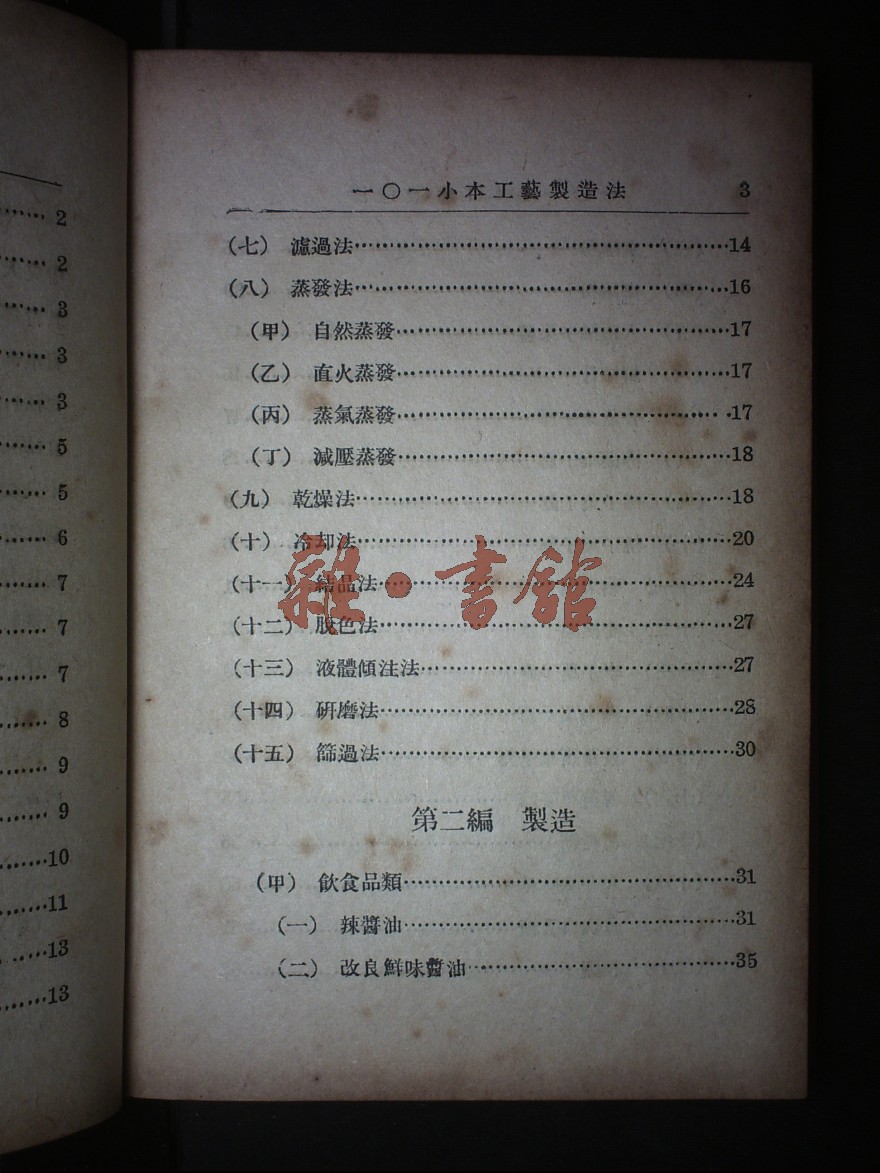 一〇一小本工藝製造法 3
(七) 濾過法……14
(八) 蒸發法……16
(甲) 自然蒸發……17
(乙) 直火蒸發……17
(丙) 蒸氣蒸發……17
(丁) 減壓蒸發……18
(九) 乾燥法……18
(十) 冷却法……20
(十一) 結晶法……24
(十二) 脫色法……27
(十三) 液體傾注法……27
(十四) 研磨法……28
(十五) 篩過法……30
第二編 製造
(甲) 飲食品類……31
(一) 辣醬油……31
(二) 改良鮮味醬油……35
雜·書館
2
2
3
3
3
5
5
6
7
7
7
8
9
9
10
11
13
13